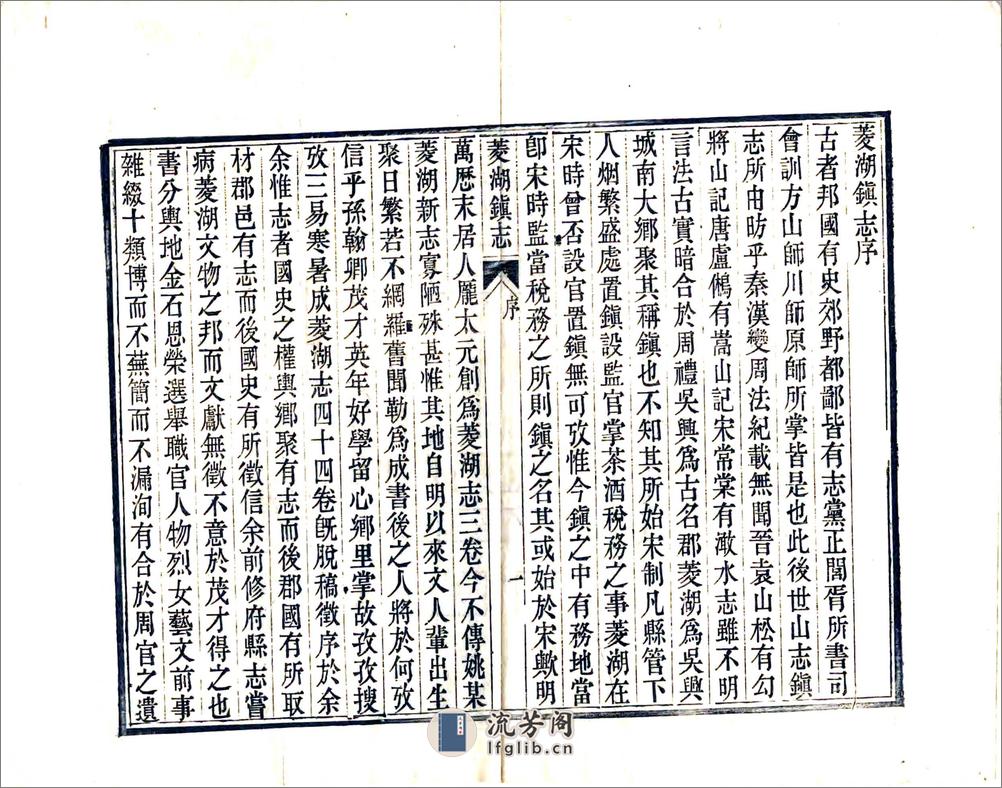 菱湖鎮志序
古者邦國有史郊野都鄙皆有志黨正閭胥所書司
會訓方山師川師原師所掌皆是也此後世山志鎮
志所由昉乎秦漢變周法紀載無聞晉袁山松有勾
將山記唐盧鴻有嵩山記宋常棠有澉水志雖不明
言法古實暗合於周禮吳興爲古名郡菱湖爲吳興
城南大鄉聚其稱鎮也不知其所始宋制凡縣管下
人烟繁盛處置鎮設監官掌茶酒稅務之事菱湖在
宋時曾否設官置鎮無可攷惟今鎮之中有務地當
卽宋時監當稅務之所則鎮之名其或始於宋歟明
菱湖鎮志
序
一
萬歷末居人龐太元創爲菱湖志三卷今不傳姚某
菱湖新志寡陋殊甚惟其地自明以來文人輩出生
聚日繁若不網羅舊聞勒爲成書後之人將於何攷
信乎孫翰卿茂才英年好學留心鄉里掌故孜孜搜
攷三易寒暑成菱湖志四十四卷旣脫稿徵序於余
余惟志者國史之權輿鄉聚有志而後郡國有所取
材郡邑有志而後國史有所徵信余前修府縣志嘗
病菱湖文物之邦而文獻無徵不意於茂才得之也
書分輿地金石恩榮選舉職官人物烈女藝文前事
雜綴十類博而不蕪簡而不漏洵有合於周官之遺
流芳阁
lfglib.cn